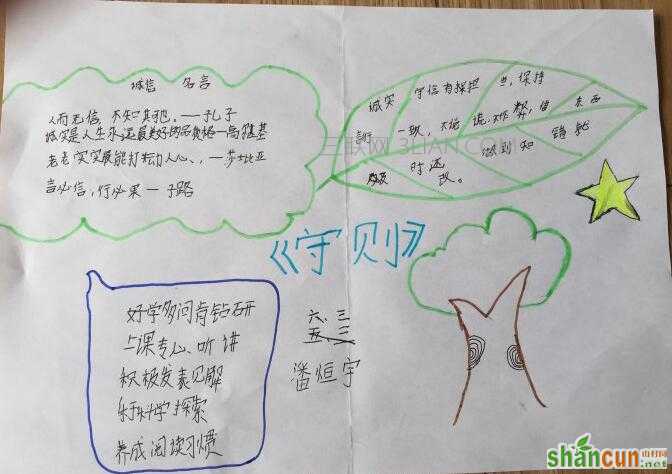 诚信 名言
人而无信,不知其可。——孔子
诚实是人生永远最美好的品格——高尔基
老老实实最能打动人心、——莎士比亚
言必信,行必果 — 子路
诚实 守信有探担 当,保持
言行 一致,不说 谎,不作 弊,借 东西
及时还 做到知 错就
改。
《守则》
好学多问肯钻研
上课专心听讲
积极发表见解
乐于科学探索
养成阅读习惯
六、三
五 三
潘烜宇
三联网 3LIAN.C
shancun
山村网
.net